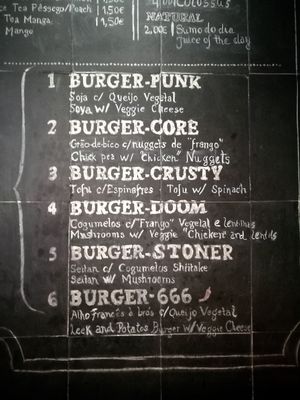 COLOSSUS
Tea Pêssego/Peach 1,50€
Tea Manga 1,50€
Mango
NATURAL
2,00€ Sumo do dia
juice of the day
1 BURGER-PUNK
Soja c/ Queijo Vegetal
Soya w/ Veggie Cheese
2 BURGER-CORE
Grão-de-bico c/nuggets de "frango"
Chick pea w/ "Chicken" Nuggets
3 BURGER-CRUSTY
Tofu c/Espinafres - Tofu w/ Spinach
4 BURGER-DOOM
Cogumelos c/"Frango" Vegetal e lentilhas
Mushrooms w/ Veggie "Chicken" and lentils
5 BURGER-STONER
Seitan c/ Cogumelos Shiitake
Seitan w/ Mushrooms
6 BURGER-666
Alho Francês à brás c/ Queijo Vegetal
Leek and Potatos Burger w/ Veggie Cheese